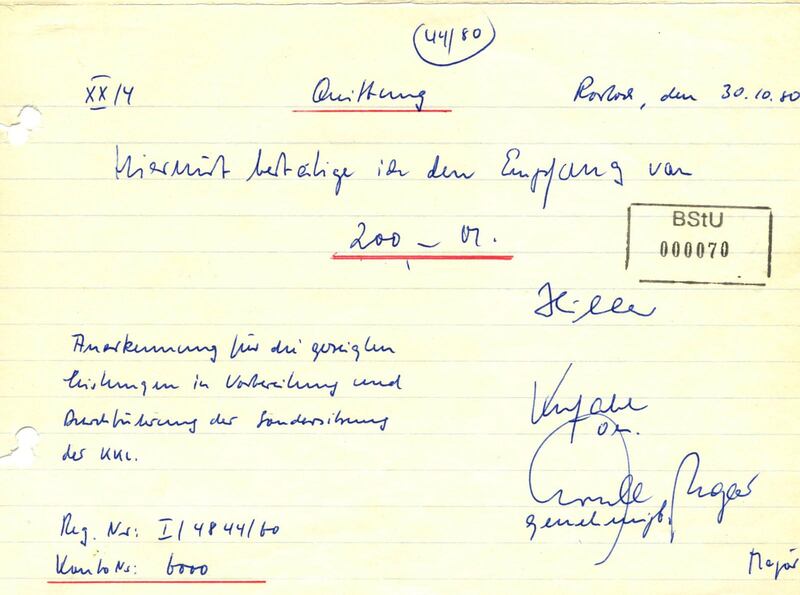 44/80
XX/4 Quittung Rostock, den 30.10.80
Hiermit bestätige ich den Empfang von
200,– M.
BStU
000070
Hiller
Anerkennung für die gezeigten
Leistungen in Vorbereitung und
Durchführung der Sondersitzung
der KKL.
genehmigt
Reg. Nr: I/4844/60
Konto Nr: 6000
Major